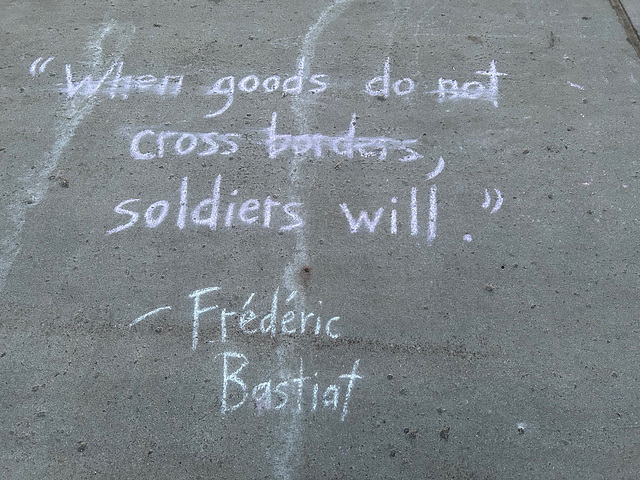 “When goods do not
cross borders,
soldiers will.”
- Frédéric
Bastiat